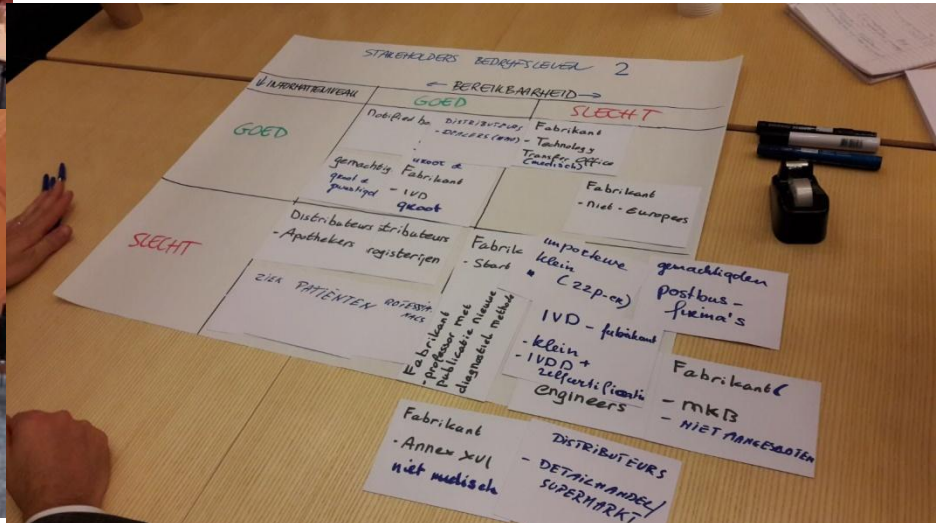 STAKEHOLDERS BEDRYFSLEVEN 2
← BEREIKBAARHEID →
↓ INFORMATIENIVEAU
GOED
SLECHT
GOED
Notified bo
DISTRIBUTEURS
- DEALERS
Fabrikant
- Technology
Transfer Office
(medisch)
gemachtig
groot &
Fabrikant
- IVD
groot
Fabrikant
- niet - europees
SLECHT
Distributeurs
- Apothekers
stributeurs
ogisterijen
ZIEK
PATIËNTEN
Fabrik
- Start
importeurs
klein
(ZZP-er)
gemachtigden
postbus-
firma's
Fabrikant
- professor met
publicatie nieuwe
diagnostiek methode
IVD - fabrikant
- klein
- IVDD +
zelfcertificatie
engineers
Fabrikant
- MKB
- NIET AANGESLOTEN
Fabrikant
- Annex XVI
niet medisch
DISTRIBUTEURS
- DETAILHANDEL/
SUPERMARKT